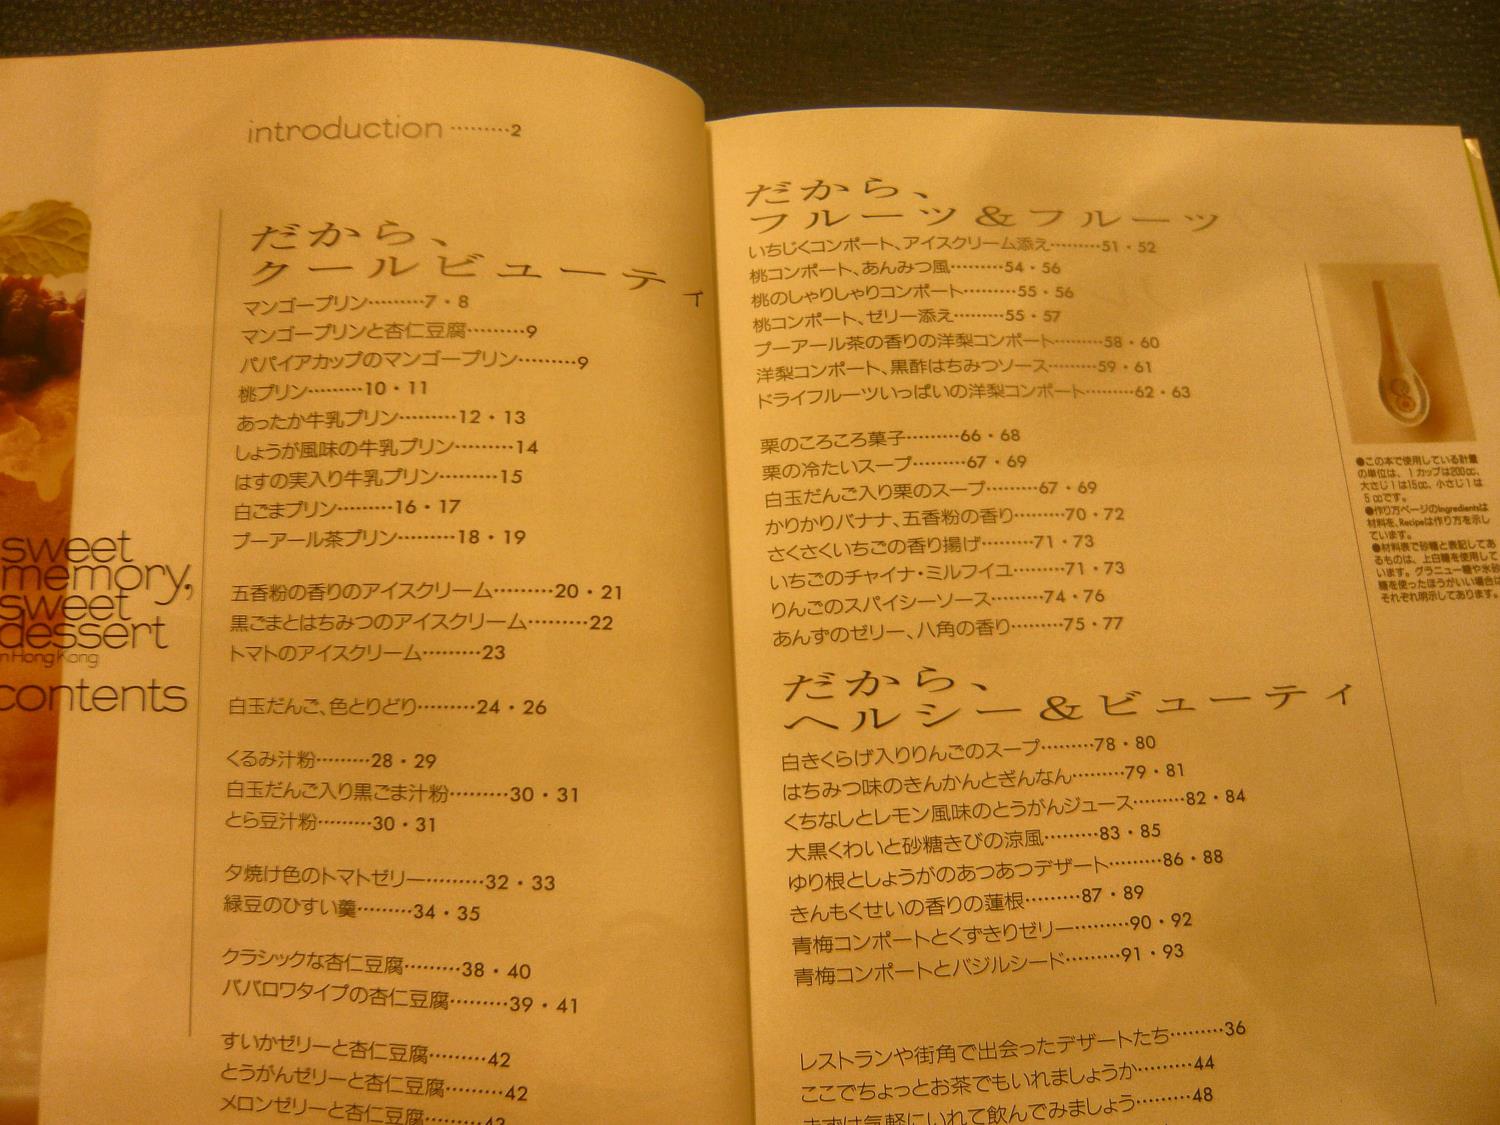 sweet
memory,
sweet
dessert
in Hong Kong
contents
introduction………2
だから、
クールビューティ
マンゴープリン………7・8
マンゴープリンと杏仁豆腐………9
パパイアカップのマンゴープリン………9
桃プリン………10・11
あったか牛乳プリン………12・13
しょうが風味の牛乳プリン………14
はすの実入り牛乳プリン………15
白ごまプリン………16・17
プーアール茶プリン………18・19
五香粉の香りのアイスクリーム………20・21
黒ごまとはちみつのアイスクリーム………22
トマトのアイスクリーム………23
白玉だんご、色とりどり………24・26
くるみ汁粉………28・29
白玉だんご入り黒ごま汁粉………30・31
とら豆汁粉………30・31
夕焼け色のトマトゼリー………32・33
緑豆のひすい羹………34・35
クラシックな杏仁豆腐………38・40
ババロワタイプの杏仁豆腐………39・41
すいかゼリーと杏仁豆腐………42
とうがんゼリーと杏仁豆腐………42
メロンゼリーと杏仁豆腐………42
だから、
フルーツ&フルーツ
いちじくコンポート、アイスクリーム添え………51・52
桃コンポート、あんみつ風………54・56
桃のしゃりしゃりコンポート………55・56
桃コンポート、ゼリー添え………55・57
プーアール茶の香りの洋梨コンポート………58・60
洋梨コンポート、黒酢はちみつソース………59・61
ドライフルーツいっぱいの洋梨コンポート………62・63
栗のころころ菓子………66・68
栗の冷たいスープ………67・69
白玉だんご入り栗のスープ………67・69
かりかりバナナ、五香粉の香り………70・72
さくさくいちごの香り揚げ………71・73
いちごのチャイナ・ミルフイユ………71・73
りんごのスパイシーソース………74・76
あんずのゼリー、八角の香り………75・77
だから、
ヘルシー&ビューティ
白きくらげ入りりんごのスープ………78・80
はちみつ味のきんかんとぎんなん………79・81
くちなしとレモン風味のとうがんジュース………82・84
大黒くわいと砂糖きびの涼風………83・85
ゆり根としょうがのあつあつデザート………86・88
きんもくせいの香りの蓮根………87・89
青梅コンポートとくずきりゼリー………90・92
青梅コンポートとバジルシード………91・93
レストランや街角で出会ったデザートたち………36
ここでちょっとお茶でもいれましょうか………44
まずは気軽にいれて飲んでみましょう………48
●この本で使用している計量
の単位は、1カップは200cc、
大さじ1は15cc、小さじ1は
5ccです。
●作り方ページのIngredientsは
材料を、Recipeは作り方を示し
ています。
●材料表で砂糖と表記してあ
るものは、上白糖を使用して
います。グラニュー糖や氷砂
糖を使ったほうがいい場合は
それぞれ明示してあります。